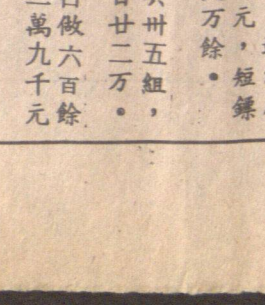 元，短鏢
万餘。
卅五組，
廿二万。
做六百餘
萬九千元